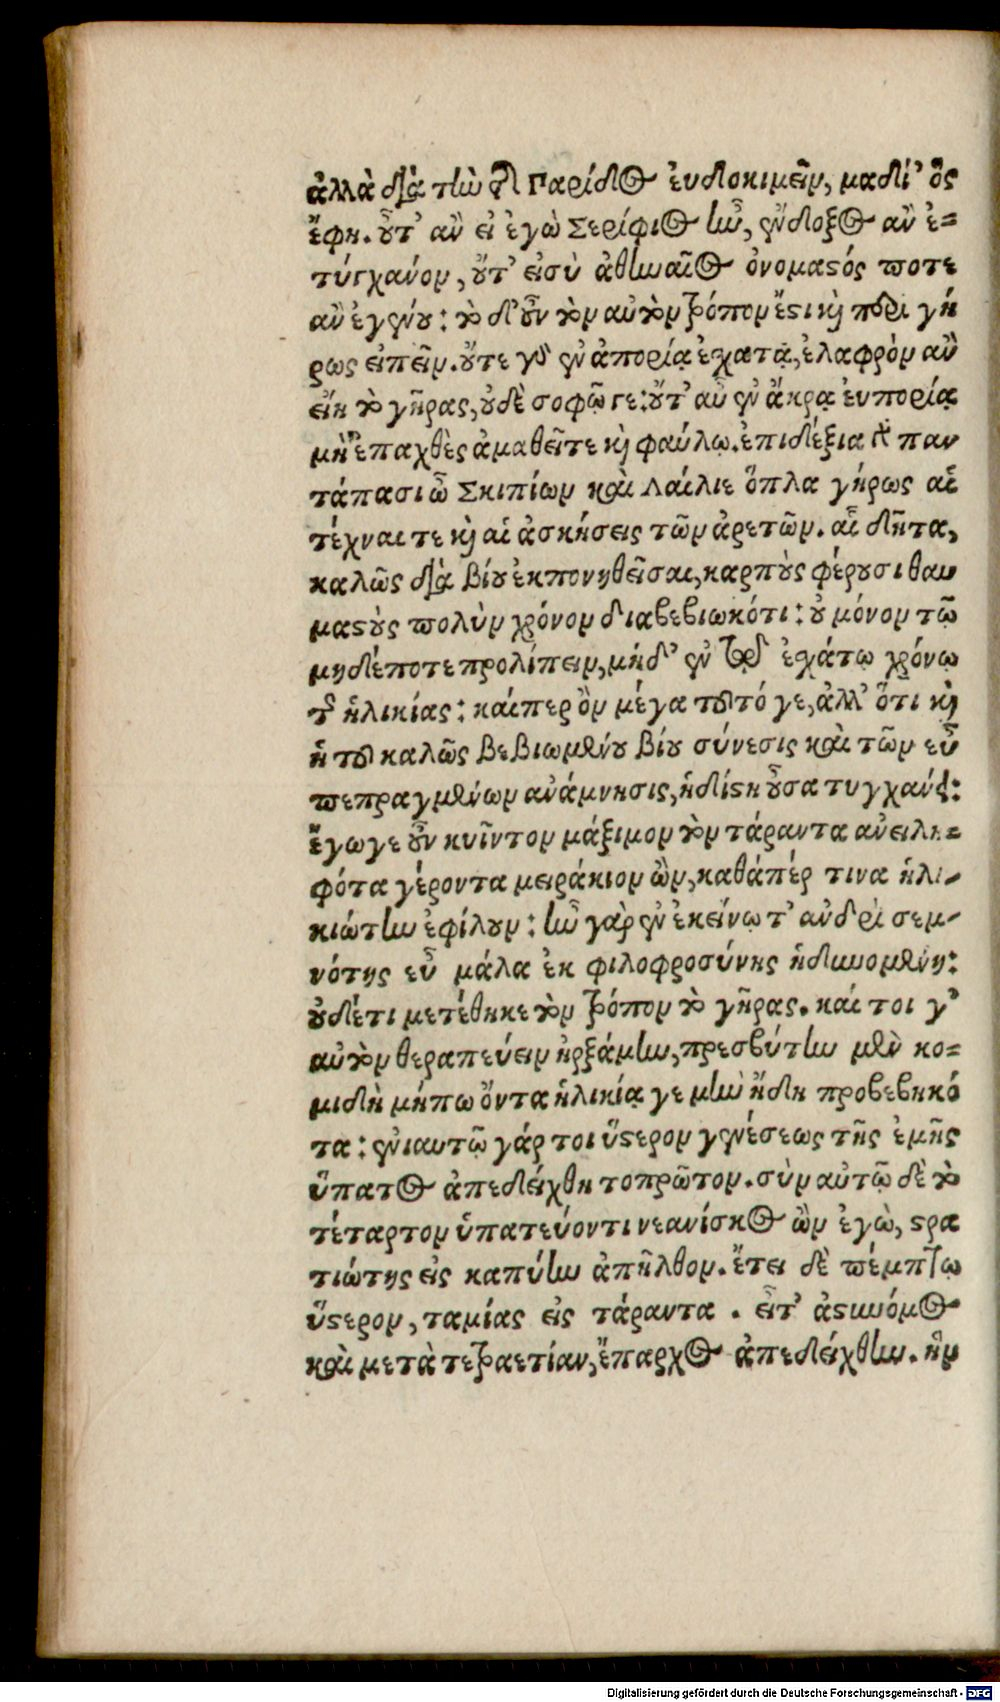 ἀλλὰ διὰ τὴν τῆς Παρίδος ἐυδοκιμεῖν, μαδί' ὃς
ἔφη. οὖτ' ἂν εἰ ἐγὼ Σερίφιος ἦν, ἔνδοξος ἂν ἐ=
τύγχανον, οὔτ' εἰ σὺ ἀθηναῖος ὀνομαστός ποτε
ἂν ἐγένου: τὸ δ' οὖν τὸν αὐτὸν τρόπον ἔστι καὶ περὶ γή
ρως εἰπεῖν. οὔτε γὰρ ἐν ἀπορίᾳ ἐσχατᾳ, ἐλαφρὸν ἂν
εἴη τὸ γῆρας, οὐδὲ σοφῷ γε: οὔτ' αὖ ἐν ἄκρᾳ ἐυπορίᾳ
μὴ ἐπαχθὲς ἀμαθεῖ τε καὶ φαύλῳ. ἐπιδέξια δὲ παν
τάπασι ὦ Σκιπίων καὶ Λαίλιε ὅπλα γήρως αἵ
τέχναι τε καὶ αἱ ἀσκήσεις τῶν ἀρετῶν. αἳ δῆτα,
καλῶς διὰ βίου ἐκπονηθεῖσαι, καρποὺς φέρουσι θαυ
μαστοὺς πολὺν χρόνον διαβεβιωκότι: οὐ μόνον τῷ
μηδέποτε προλίπειν, μήδ' ἐν τῷδ' ἐσχάτῳ χρόνῳ
τῆς ἡλικίας: καίπερ ὂν μέγα τοῦτό γε, ἀλλ' ὅτι καὶ
ἡ τοῦ καλῶς βεβιωμένου βίου σύνεσις καὶ τῶν εὖ
πεπραγμένων ἀνάμνησις, ἡδίστη οὖσα τυγχάνει:
ἔγωγε οὖν κυῖντον μάξιμον τὸν τάραντα ἀνειλη=
φότα γέροντα μειράκιον ὢν, καθάπέρ τινα ἡλι-
κιώτην ἐφίλουν: ἦν γὰρ ἐν ἐκείνῳ τ' ἀνδρὶ σεμ-
νότης εὖ μάλα ἐκ φιλοφροσύνης ἡδυνομένη:
οὐδέ τι μετέθηκε τὸν τρόπον τὸ γῆρας. καί τοι γ'
αὐτὸν θεραπεύειν ἠρξάμην, πρεσβύτην μὲν κο=
μιδὴ μήπω ὄντα ἡλικίᾳ γε μὴν ἤδη προβεβηκό
τα: ἐνιαυτῷ γάρ τοι ὕστερον γενέσεως τῆς ἐμῆς
ὕπατος ἀπεδείχθη τοπρῶτον. σὺν αὐτῷ δὲ τὸ
τέταρτον ὑπατεύοντι νεανίσκος ὢν ἐγὼ, στρα
τιώτης εἰς καπύην ἀπῆλθον. ἔτει δὲ πέμπτῳ
ὕστερον, ταμίας εἰς τάραντα. εἶτ' ἀστυνόμος
καὶ μετὰ τετραετίαν, ἔπαρχος ἀπεδείχθην. ἣν
Digitalisierung gefördert durch die Deutsche Forschungsgemeinschaft - DFG